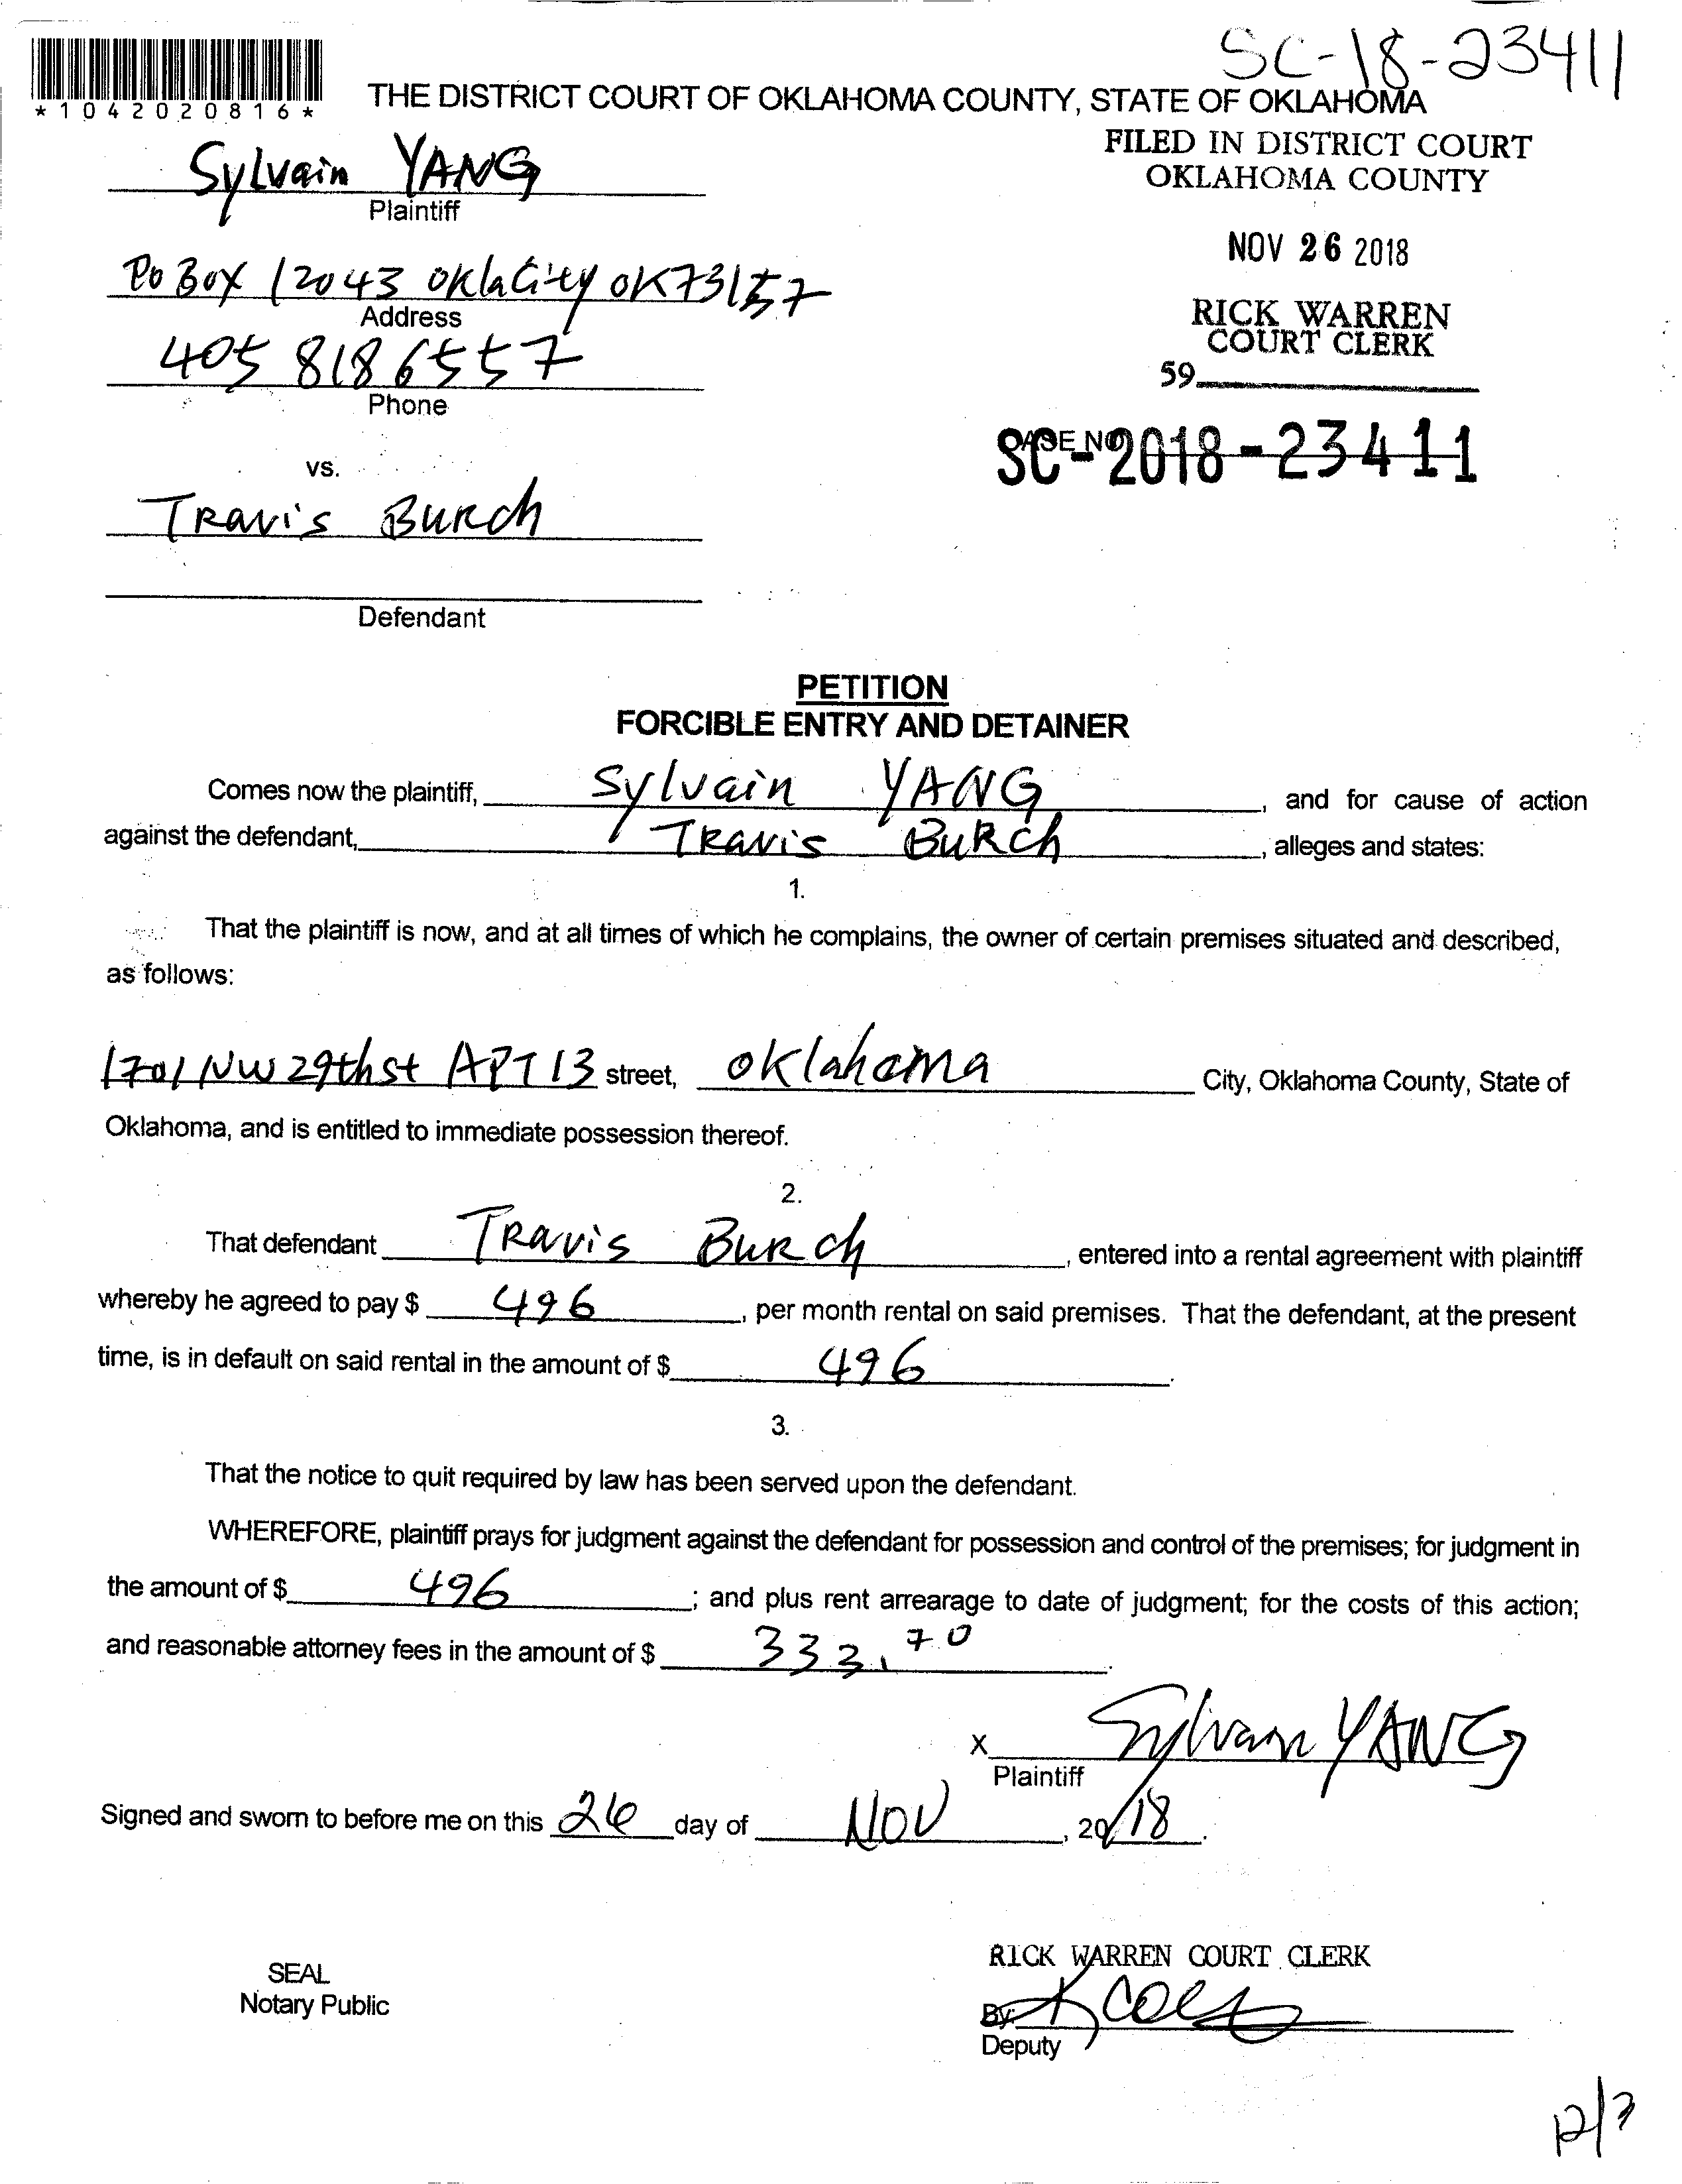 SC-18-23411
*1042020816*
THE DISTRICT COURT OF OKLAHOMA COUNTY, STATE OF OKLAHOMA
FILED IN DISTRICT COURT
OKLAHOMA COUNTY
Sylvain YANG
Plaintiff
NOV 26 2018
PO BOX 12043 OklaCity OK73157
Address
RICK WARREN
COURT CLERK
405 8186557
Phone
59
CASE NO
SC-2018-23411
vs.
TRavis BURch
Defendant
PETITION
FORCIBLE ENTRY AND DETAINER
Comes now the plaintiff, Sylvain YANG, and for cause of action
against the defendant, TRavis BuRch, alleges and states:
1.
That the plaintiff is now, and at all times of which he complains, the owner of certain premises situated and described,
as follows:
1701 NW 29th st APT 13 street, oklahoma City, Oklahoma County, State of
Oklahoma, and is entitled to immediate possession thereof.
2.
That defendant TRavis BuRch, entered into a rental agreement with plaintiff
whereby he agreed to pay $ 496, per month rental on said premises. That the defendant, at the present
time, is in default on said rental in the amount of $ 496.
3.
That the notice to quit required by law has been served upon the defendant.
WHEREFORE, plaintiff prays for judgment against the defendant for possession and control of the premises; for judgment in
the amount of $ 496; and plus rent arrearage to date of judgment; for the costs of this action;
and reasonable attorney fees in the amount of $ 333.70.
x Sylvain YANG
Plaintiff
Signed and sworn to before me on this 26 day of NOV, 2018.
RICK WARREN COURT CLERK
SEAL
Notary Public
By:
Deputy